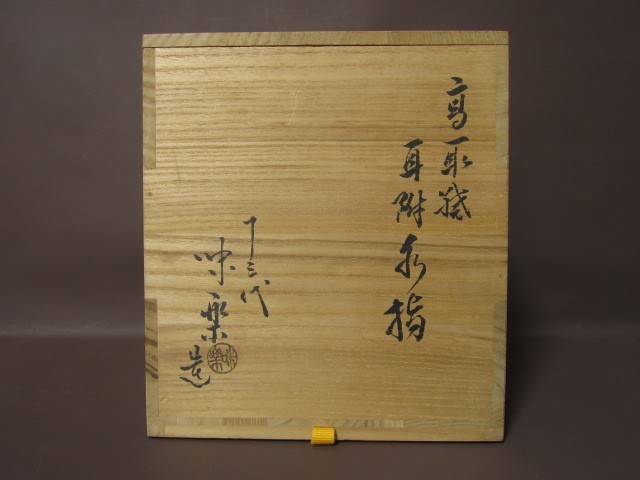 高取焼
耳附水指
十三代
味楽造